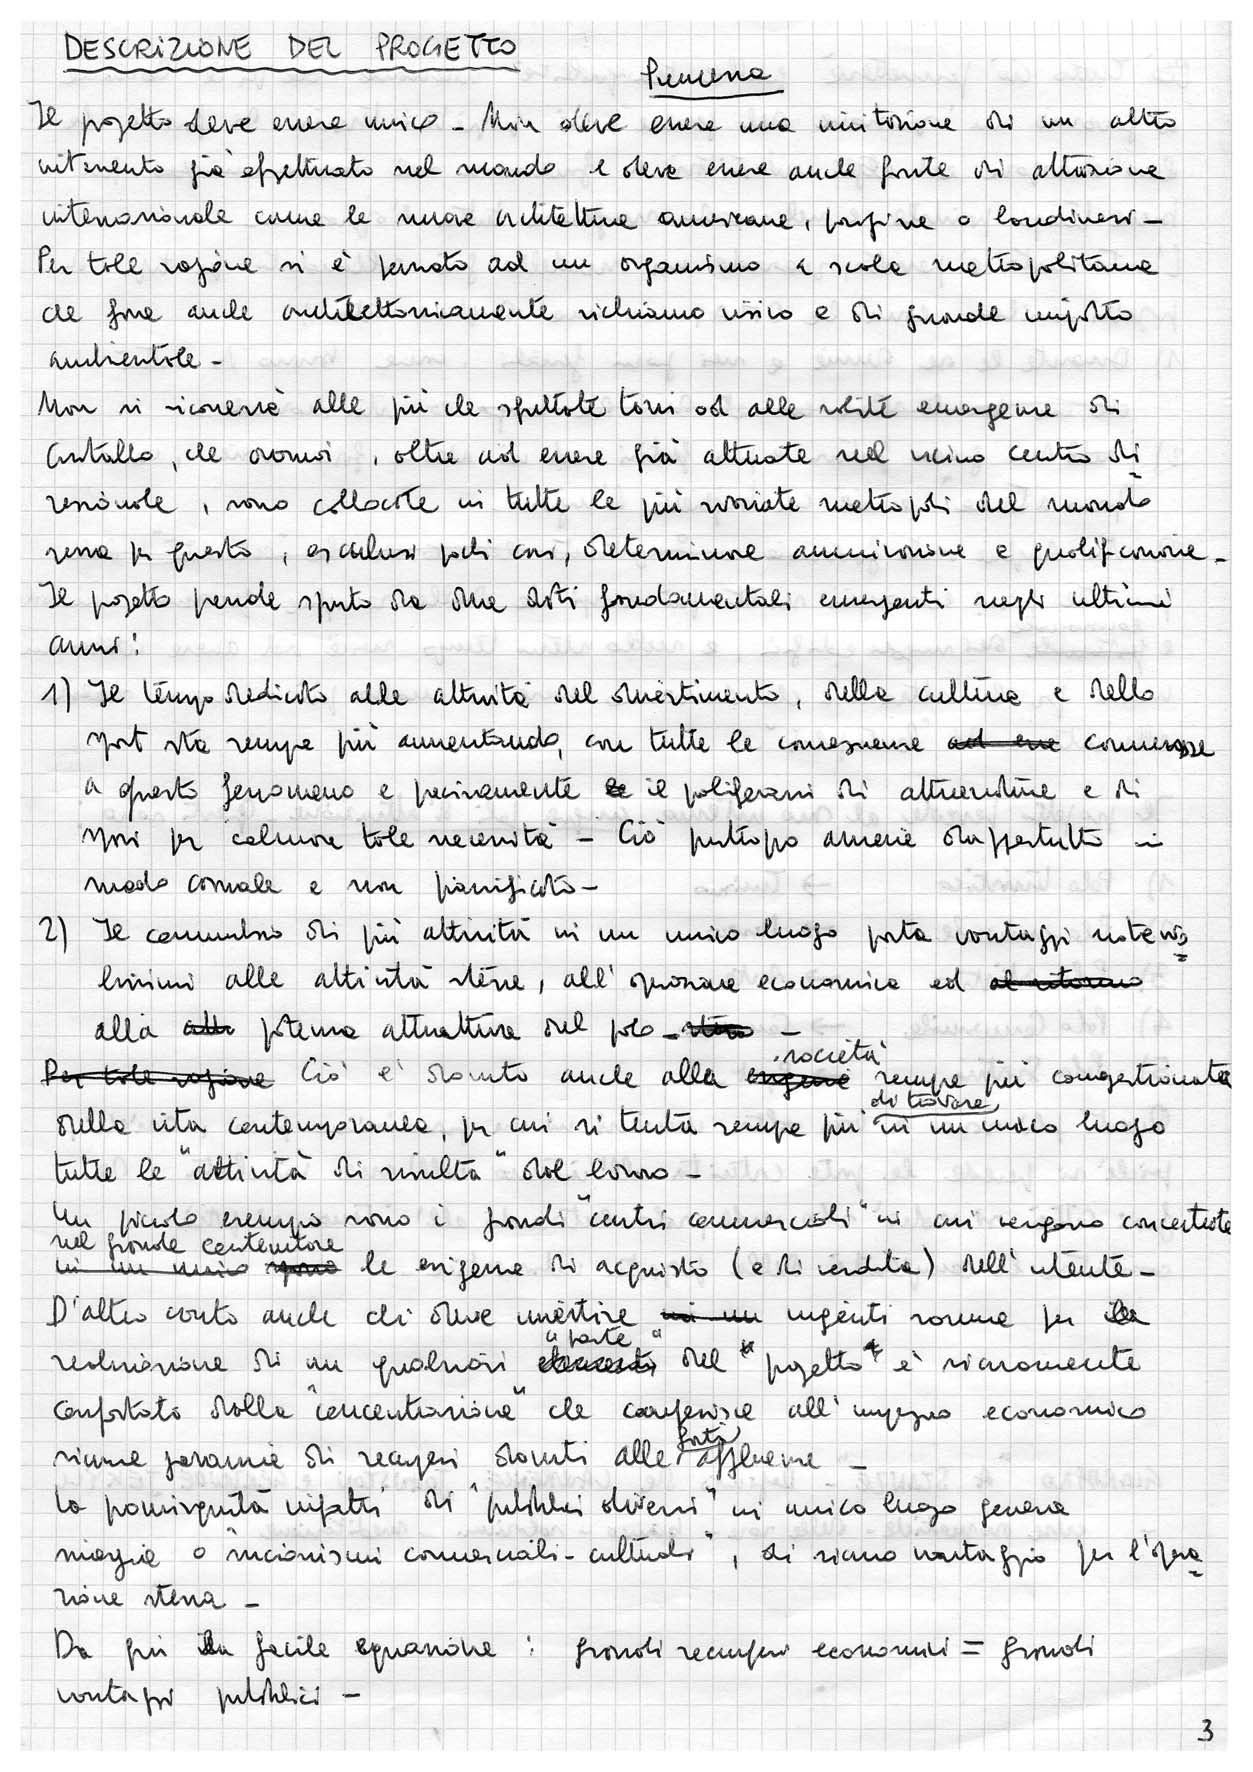 DESCRIZIONE DEL PROGETTO
Premessa
Il progetto deve essere unico - Non deve essere una imitazione di un altro
intervento già effettuato nel mondo e deve essere anche fonte di attrazione
internazionale come le nuove architetture americane, parigine o londinesi -
Per tale ragione si è pensato ad un organismo a scala metropolitana
che fosse anche architettonicamente richiamo visivo e di grande impatto
ambientale -
Non si ricorrerà alle più che sfruttate torri od alle solite emergenze di
cristallo, che oramai, oltre ad essere già attuate nel vicino centro di
rezionale, sono collocate in tutte le più svariate metropoli del mondo
senza per questo, esclusi pochi casi, determinare ammirazione e qualificazione -
Il progetto prende spunto da due dati fondamentali emergenti negli ultimi
anni:
1) Il tempo dedicato alle attività del divertimento, della cultura e dello
sport sta sempre più aumentando, con tutte le conseguenze ad esse connesse
a questo fenomeno e precisamente il proliferarsi di attrezzature e di
spazi per colmare tale necessità - Ciò purtroppo avviene dappertutto in
modo casuale e non pianificato -
2) Il connubio di più attività in un unico luogo porta vantaggi notevo
lissimi alle attività stesse, all'operazione economica ed al ritorno
alla alla potenza attrattiva del polo - stesso -
Per tale ragione Ciò è dovuto anche alla esigenze società sempre più congestionata
della vita contemporanea, per cui si tenta sempre più di trovare in un unico luogo
tutte le "attività di risulta" dal lavoro -
Un piccolo esempio sono i grandi "centri commerciali" in cui vengono concentrate
nel grande contenitore
in un unico spazio le esigenze di acquisto (e di vendita) dell'utente -
D'altro canto anche chi deve investire in un ingenti somme per la
realizzazione di un qualsiasi "parte" elemento del "progetto" è sicuramente
confortato dalla "concentrazione" che conferisce all'impegno economico
sicure garanzie di recuperi dovuti alle forti affluenze -
La promiscuità infatti di "pubblici diversi" in unico luogo genera
sinergie o "unionismi commerciali-culturali", di sicuro vantaggio per l'opera
zione stessa -
Da qui la facile equazione : grandi recuperi economici = grandi
vantaggi pubblici -
3